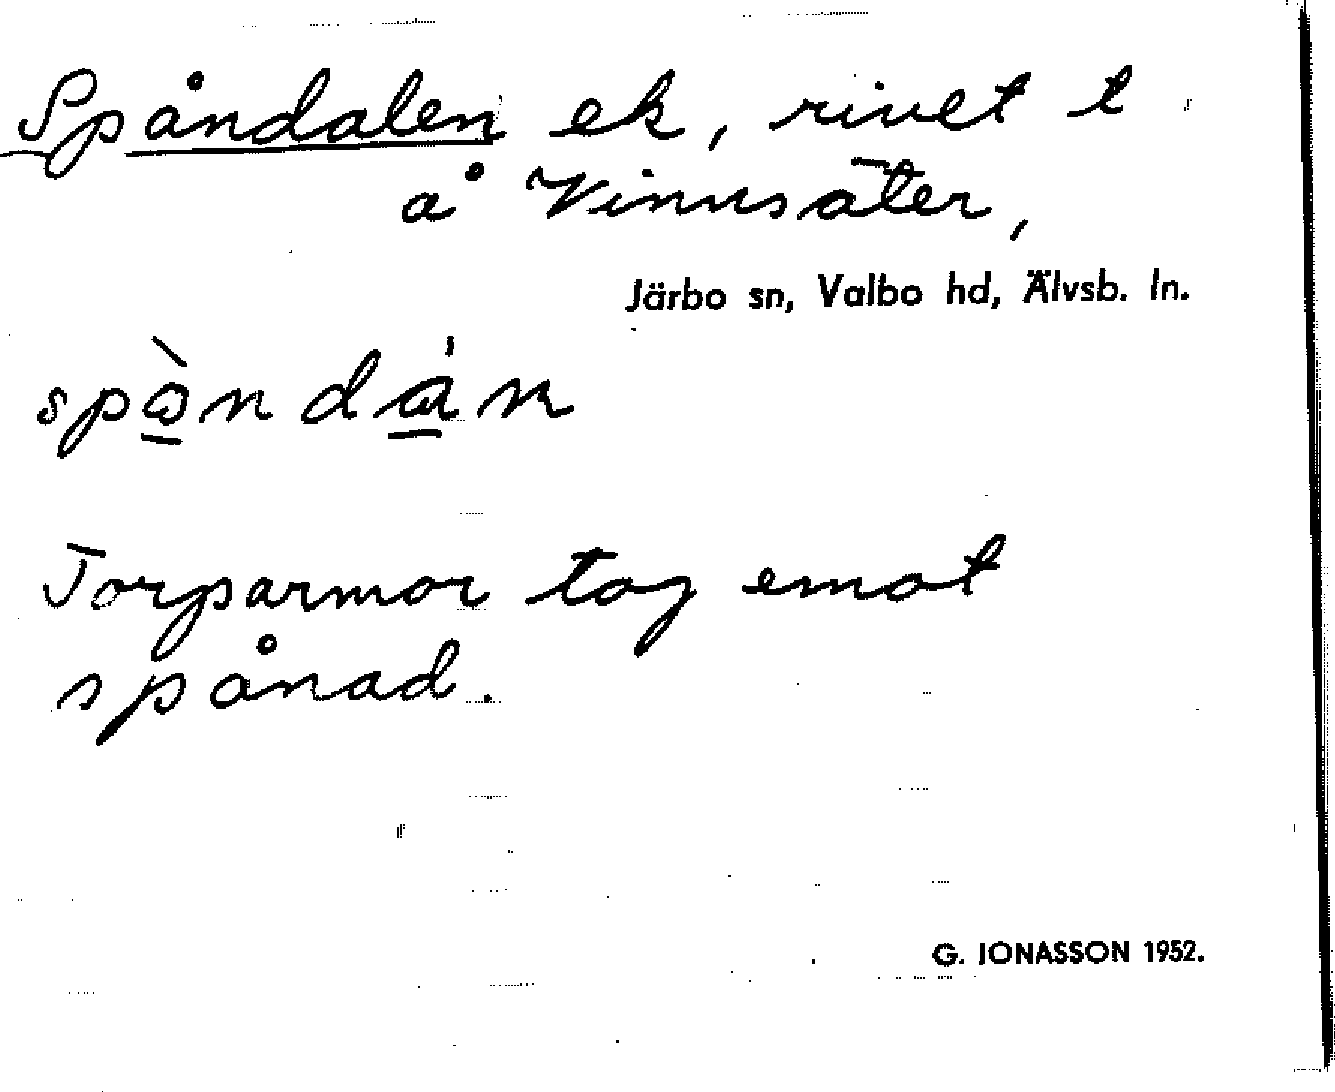 Spåndalen ek, rivet t
å Vinnsäter,
Järbo sn, Valbo hd, Älvsb. ln.
Torparmor tog emot
spånad.
G. JONASSON 1952.